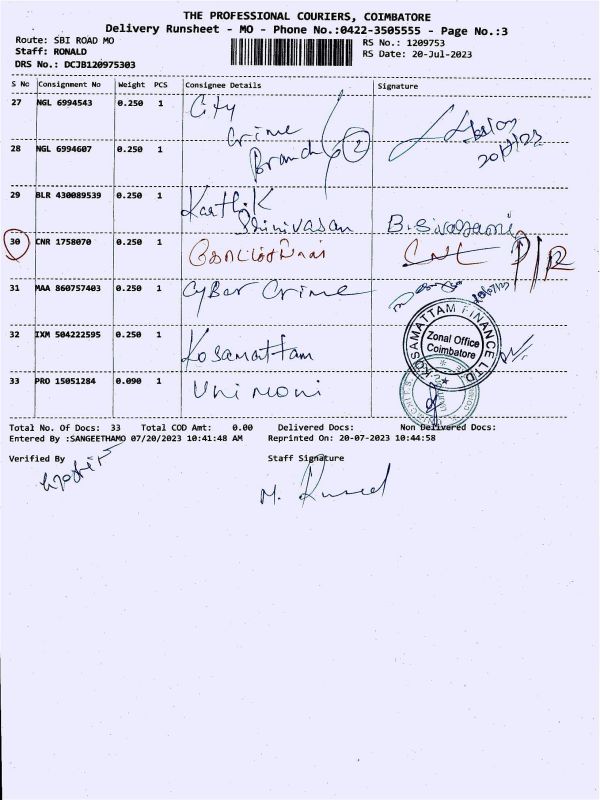 THE PROFESSIONAL COURIERS, COIMBATORE
Delivery Runsheet - MO - Phone No.:0422-3505555 - Page No.:3
Route: SBI ROAD MO
RS No.: 1209753
Staff: RONALD
RS Date: 20-Jul-2023
DRS No.: DCJB120975303
S No Consignment No Weight PCS Consignee Details Signature
27 NGL 6994543 0.250 1 City
Crime
28 NGL 6994607 0.250 1 Branch 2
29 BLR 430089539 0.250 1 Karthik
Shrinivasan
30 CNR 1758070 0.250 1
31 MAA 860757403 0.250 1 Cyber Crime
32 IXM 504222595 0.250 1 Kosamattam
KOSAMATTAM FINANCE LTD
Zonal Office
Coimbatore
33 PRO 15051284 0.090 1 Uni moni
Total No. Of Docs: 33 Total COD Amt: 0.00 Delivered Docs: Non Delivered Docs:
Entered By :SANGEETHAMO 07/20/2023 10:41:48 AM Reprinted On: 20-07-2023 10:44:58
Verified By Staff Signature